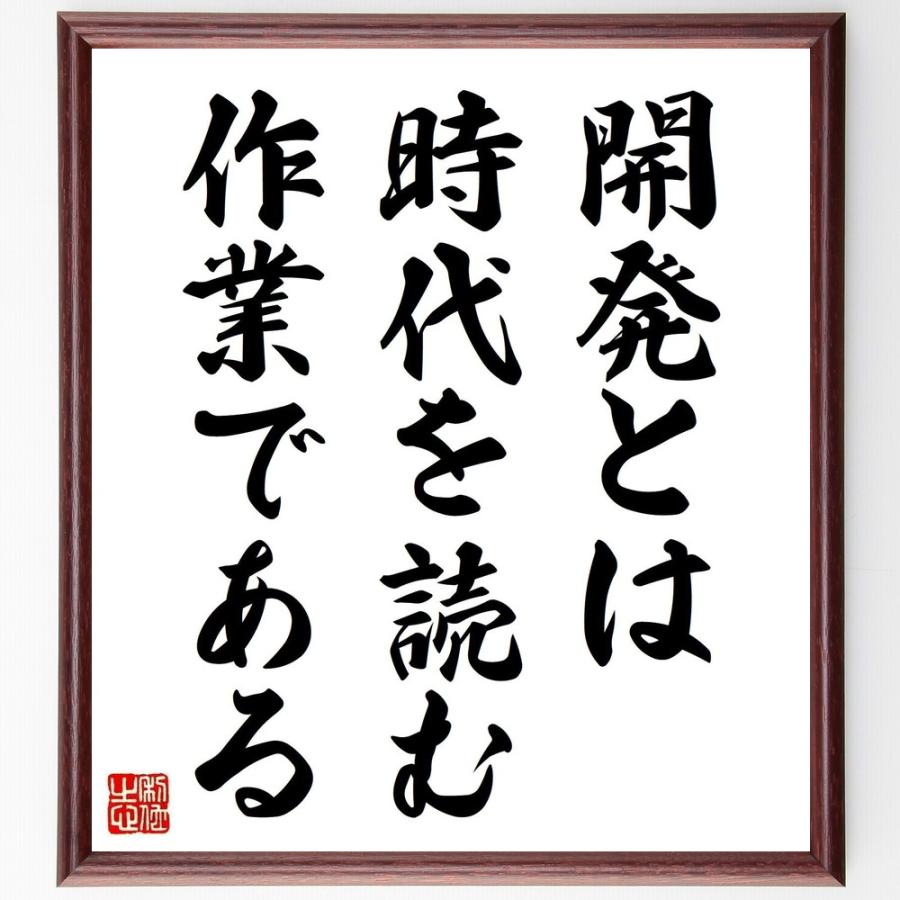 開発とは
時代を読む
作業である